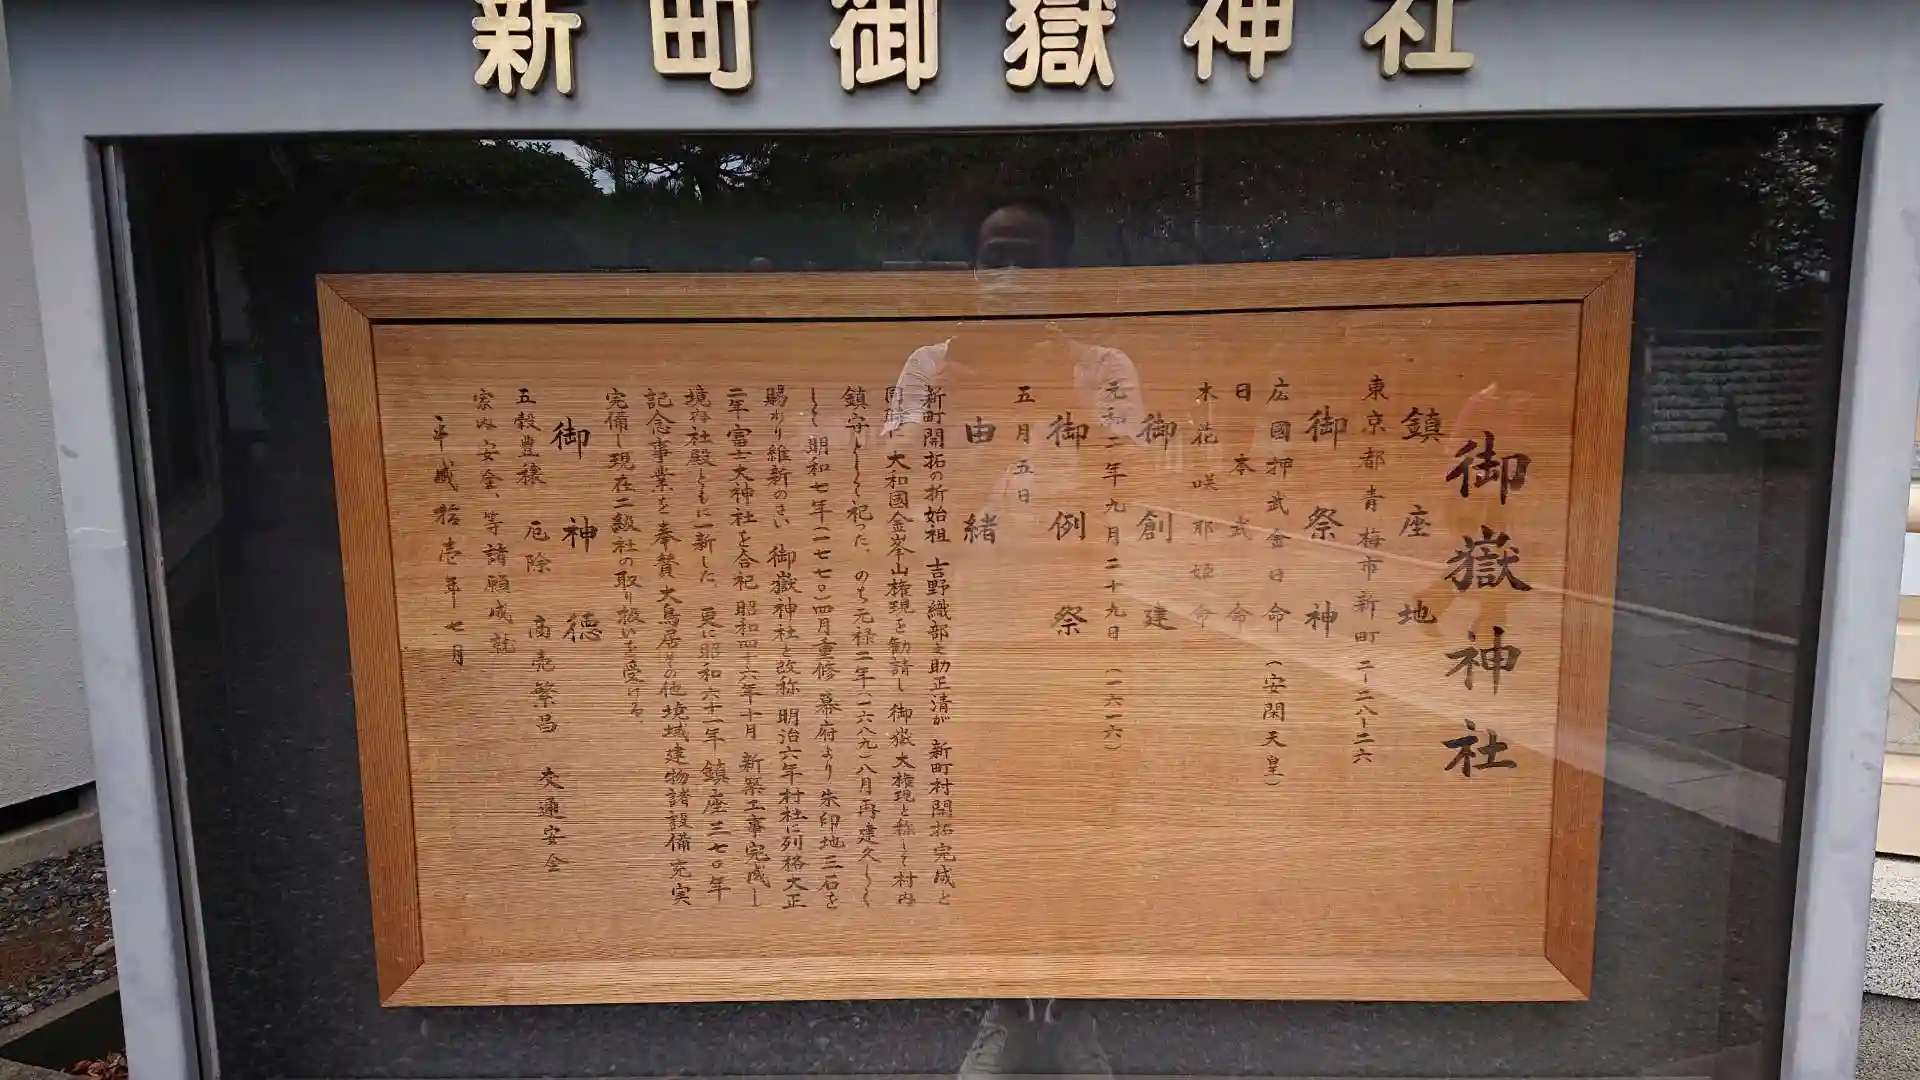 新町御嶽神社
御嶽神社
鎮座地
東京都青梅市新町二ー二八ー二六
御祭神
広國押武金日命(安閑天皇)
日本武命
木花咲耶姫命
御創建
元和二年九月二十九日(一六一六)
御例祭
五月五日
由緒
新町開拓の祈始祖 吉野織部之助正清が 新町村開拓完成と
同時に 大和國金峯山権現を勧請し 御嶽大権現と称して村内
鎮守として祀った、のち元禄二年(一六八九)八月再建久しく
して明和七年(一七七〇)四月重修 幕府より朱印地三石を
賜わり維新のさい 御嶽神社と改称 明治六年村社に列格大正
二年富士大神社を合祀 昭和四十六年十月 新築工事完成し
境内社殿ともに一新した、更に昭和六十一年鎮座三七〇年
記念事業を奉賛 大鳥居その他境域建物諸設備充実
完備し現在二級社の取り扱いを受ける、
御神徳
五穀豊穣 厄除 商売繁昌 交通安全
家内安全、等諸願成就
平成拾壱年七月